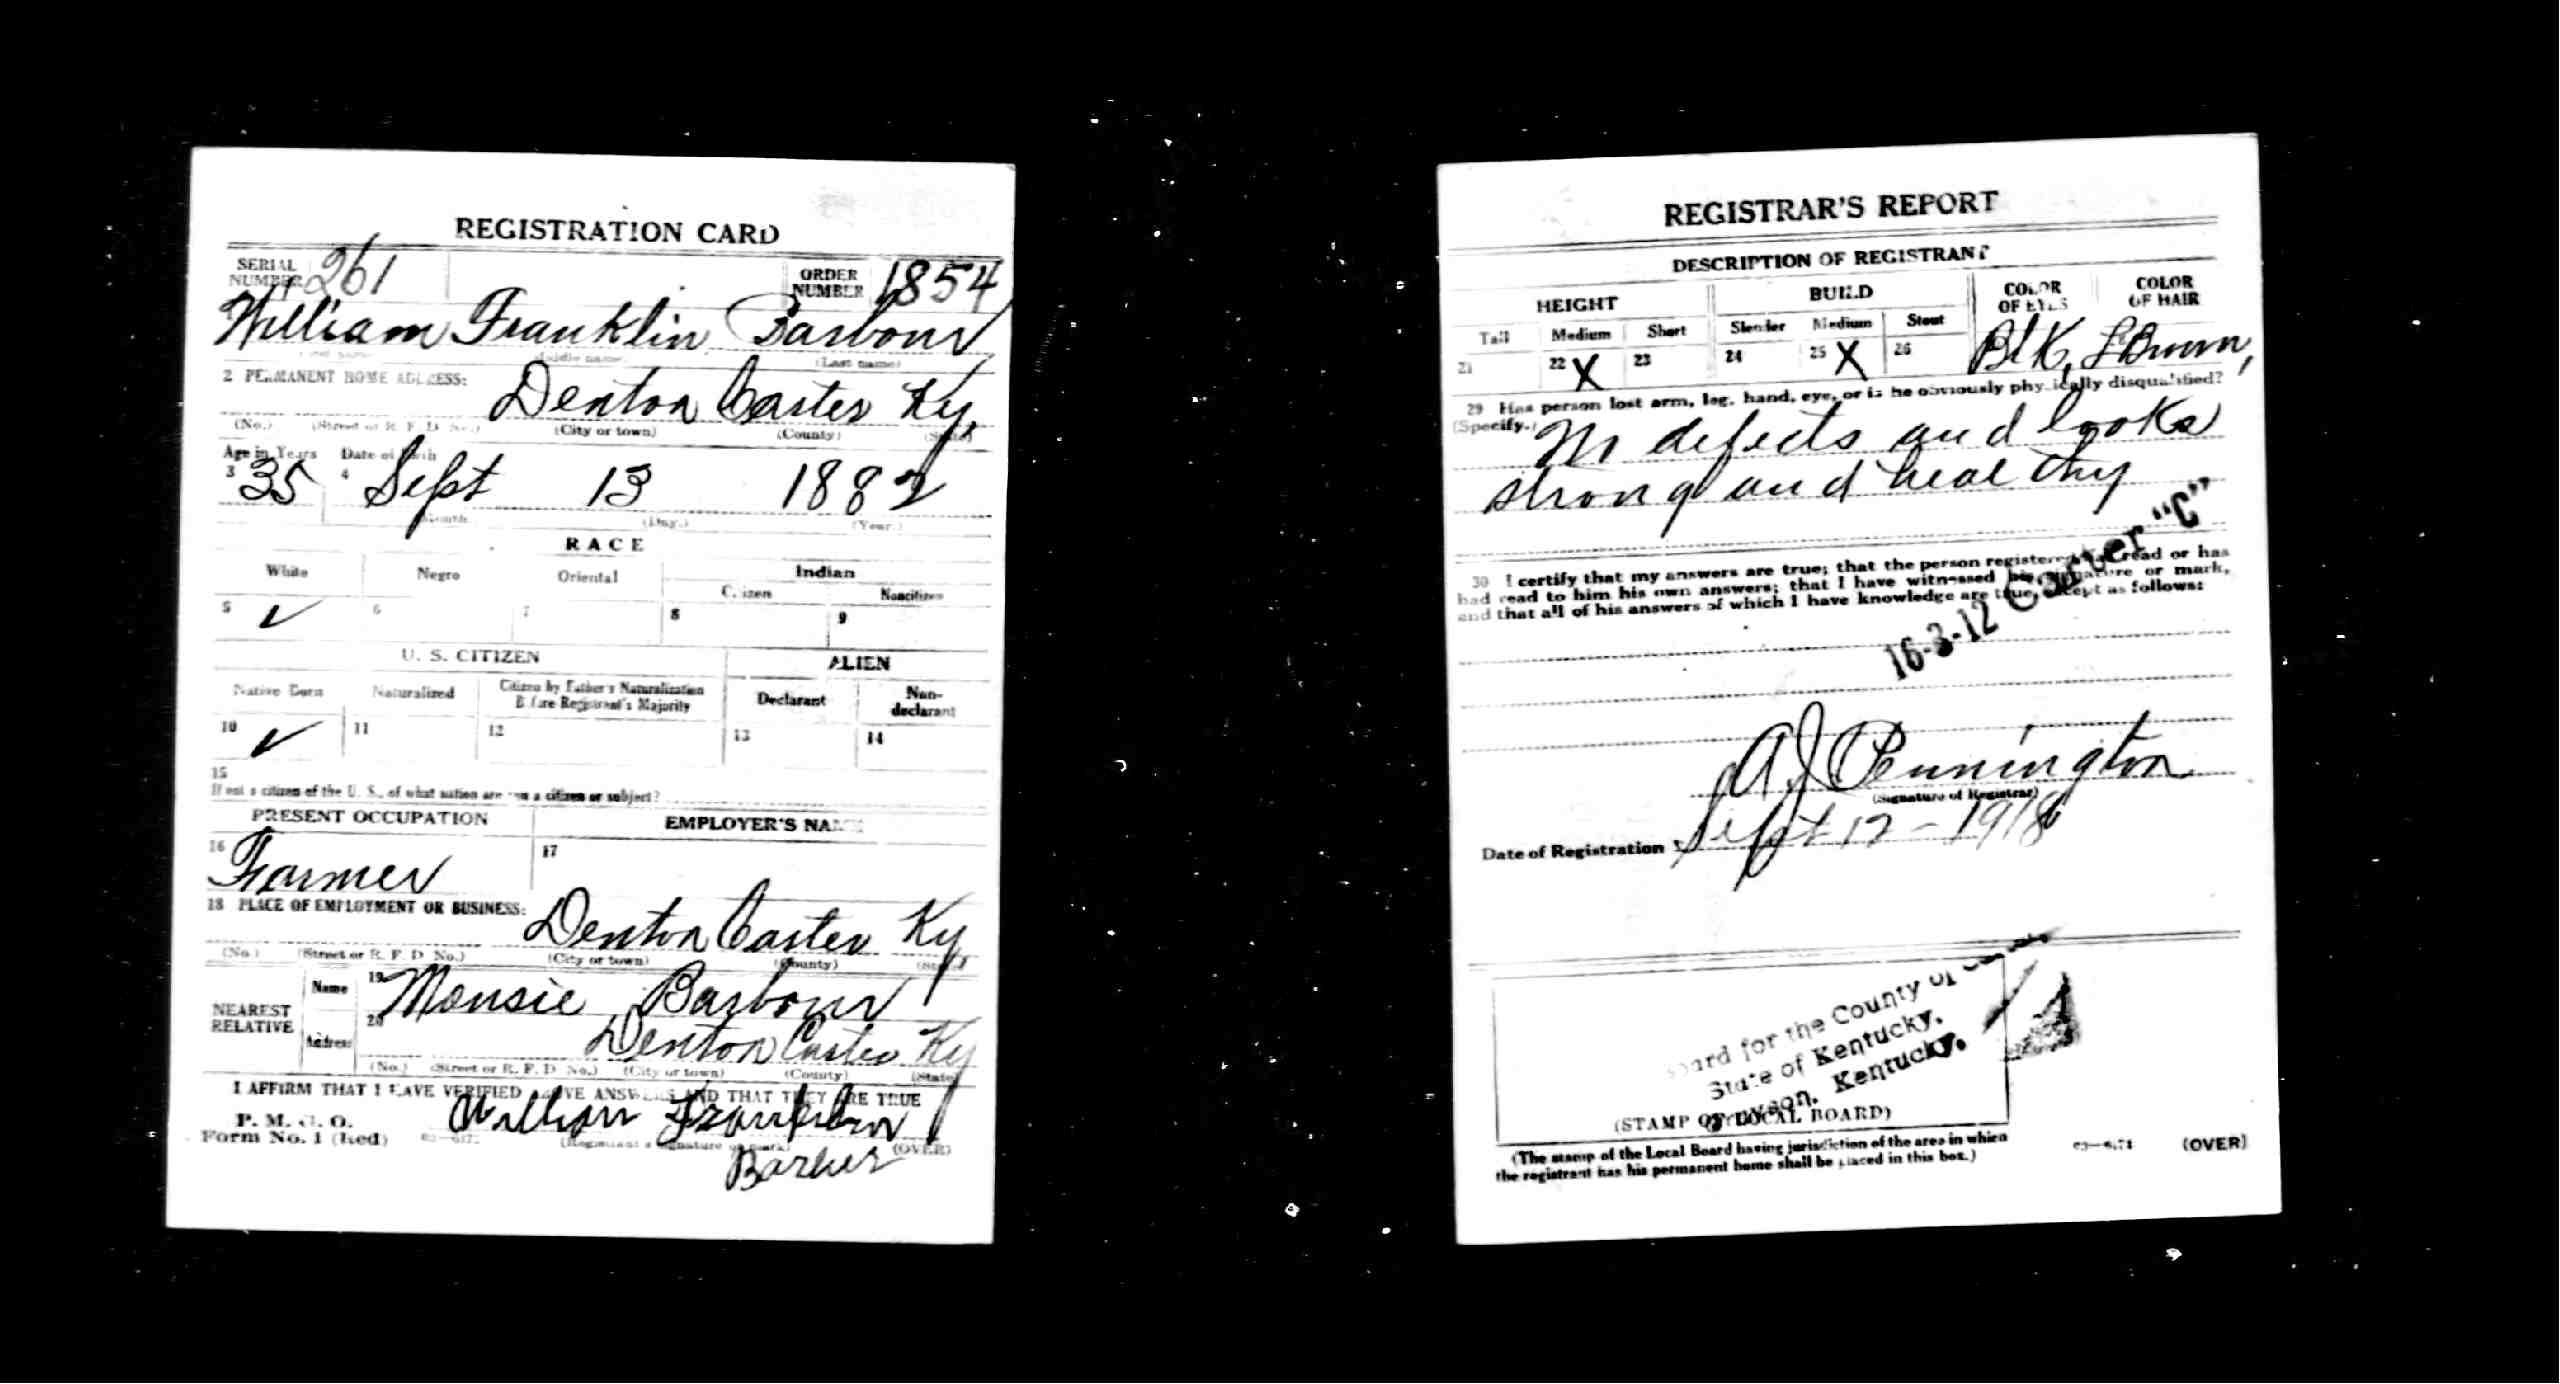 REGISTRATION CARD
SERIAL NUMBER 261 ORDER NUMBER 1854
William Franklin Barbour
(Last name)
2 PERMANENT HOME ADDRESS: Denton Carter Ky.
(No.) (Street or R. F. D. No.) (City or town) (County) (State)
Age in Years Date of Birth
3 35 4 Sept 13 1882
Month. (Day.) (Year.)
RACE
White Negro Oriental Indian
Citizen Noncitizen
5 ✓ 6 7 8 9
U. S. CITIZEN ALIEN
Native Born Naturalized Citizen by Father's Naturalization Before Registrant's Majority Declarant Non-declarant
10 ✓ 11 12 13 14
15
If not a citizen of the U. S., of what nation are you a citizen or subject?
PRESENT OCCUPATION EMPLOYER'S NAME
16 Farmer 17
18 PLACE OF EMPLOYMENT OR BUSINESS: Denton Carter Ky.
(No.) (Street or R. F. D No.) (City or town) (County) (State)
NEAREST RELATIVE Name 19 Monsie Barbour
Address 20 Denton Carter Ky
(No.) (Street or R. F. D No.) (City or town) (County) (State)
I AFFIRM THAT I HAVE VERIFIED ABOVE ANSWERS AND THAT THEY ARE TRUE
P. M. G. O.
Form No. 1 (Red) William Franklin
(Registrant's signature or mark) (OVER)
Barber
REGISTRAR'S REPORT
DESCRIPTION OF REGISTRANT
HEIGHT BUILD COLOR OF EYES COLOR OF HAIR
Tall Medium Short Slender Medium Stout
21 22 X 23 24 25 X 26 Blk, Brown,
29 Has person lost arm, leg, hand, eye, or is he obviously physically disqualified?
(Specify.) defects and looks
strong and healthy
30 I certify that my answers are true; that the person registered has read or has
had read to him his own answers; that I have witnessed his signature or mark,
and that all of his answers of which I have knowledge are true, except as follows:
16-3-12 Carter "C"
A J Pennington
(Signature of Registrar)
Date of Registration Sept 12 - 1918
Board for the County of
State of Kentucky.
Grayson, Kentucky.
(STAMP OF LOCAL BOARD)
(The stamp of the Local Board having jurisdiction of the area in which
the registrant has his permanent home shall be placed in this box.)
(OVER)